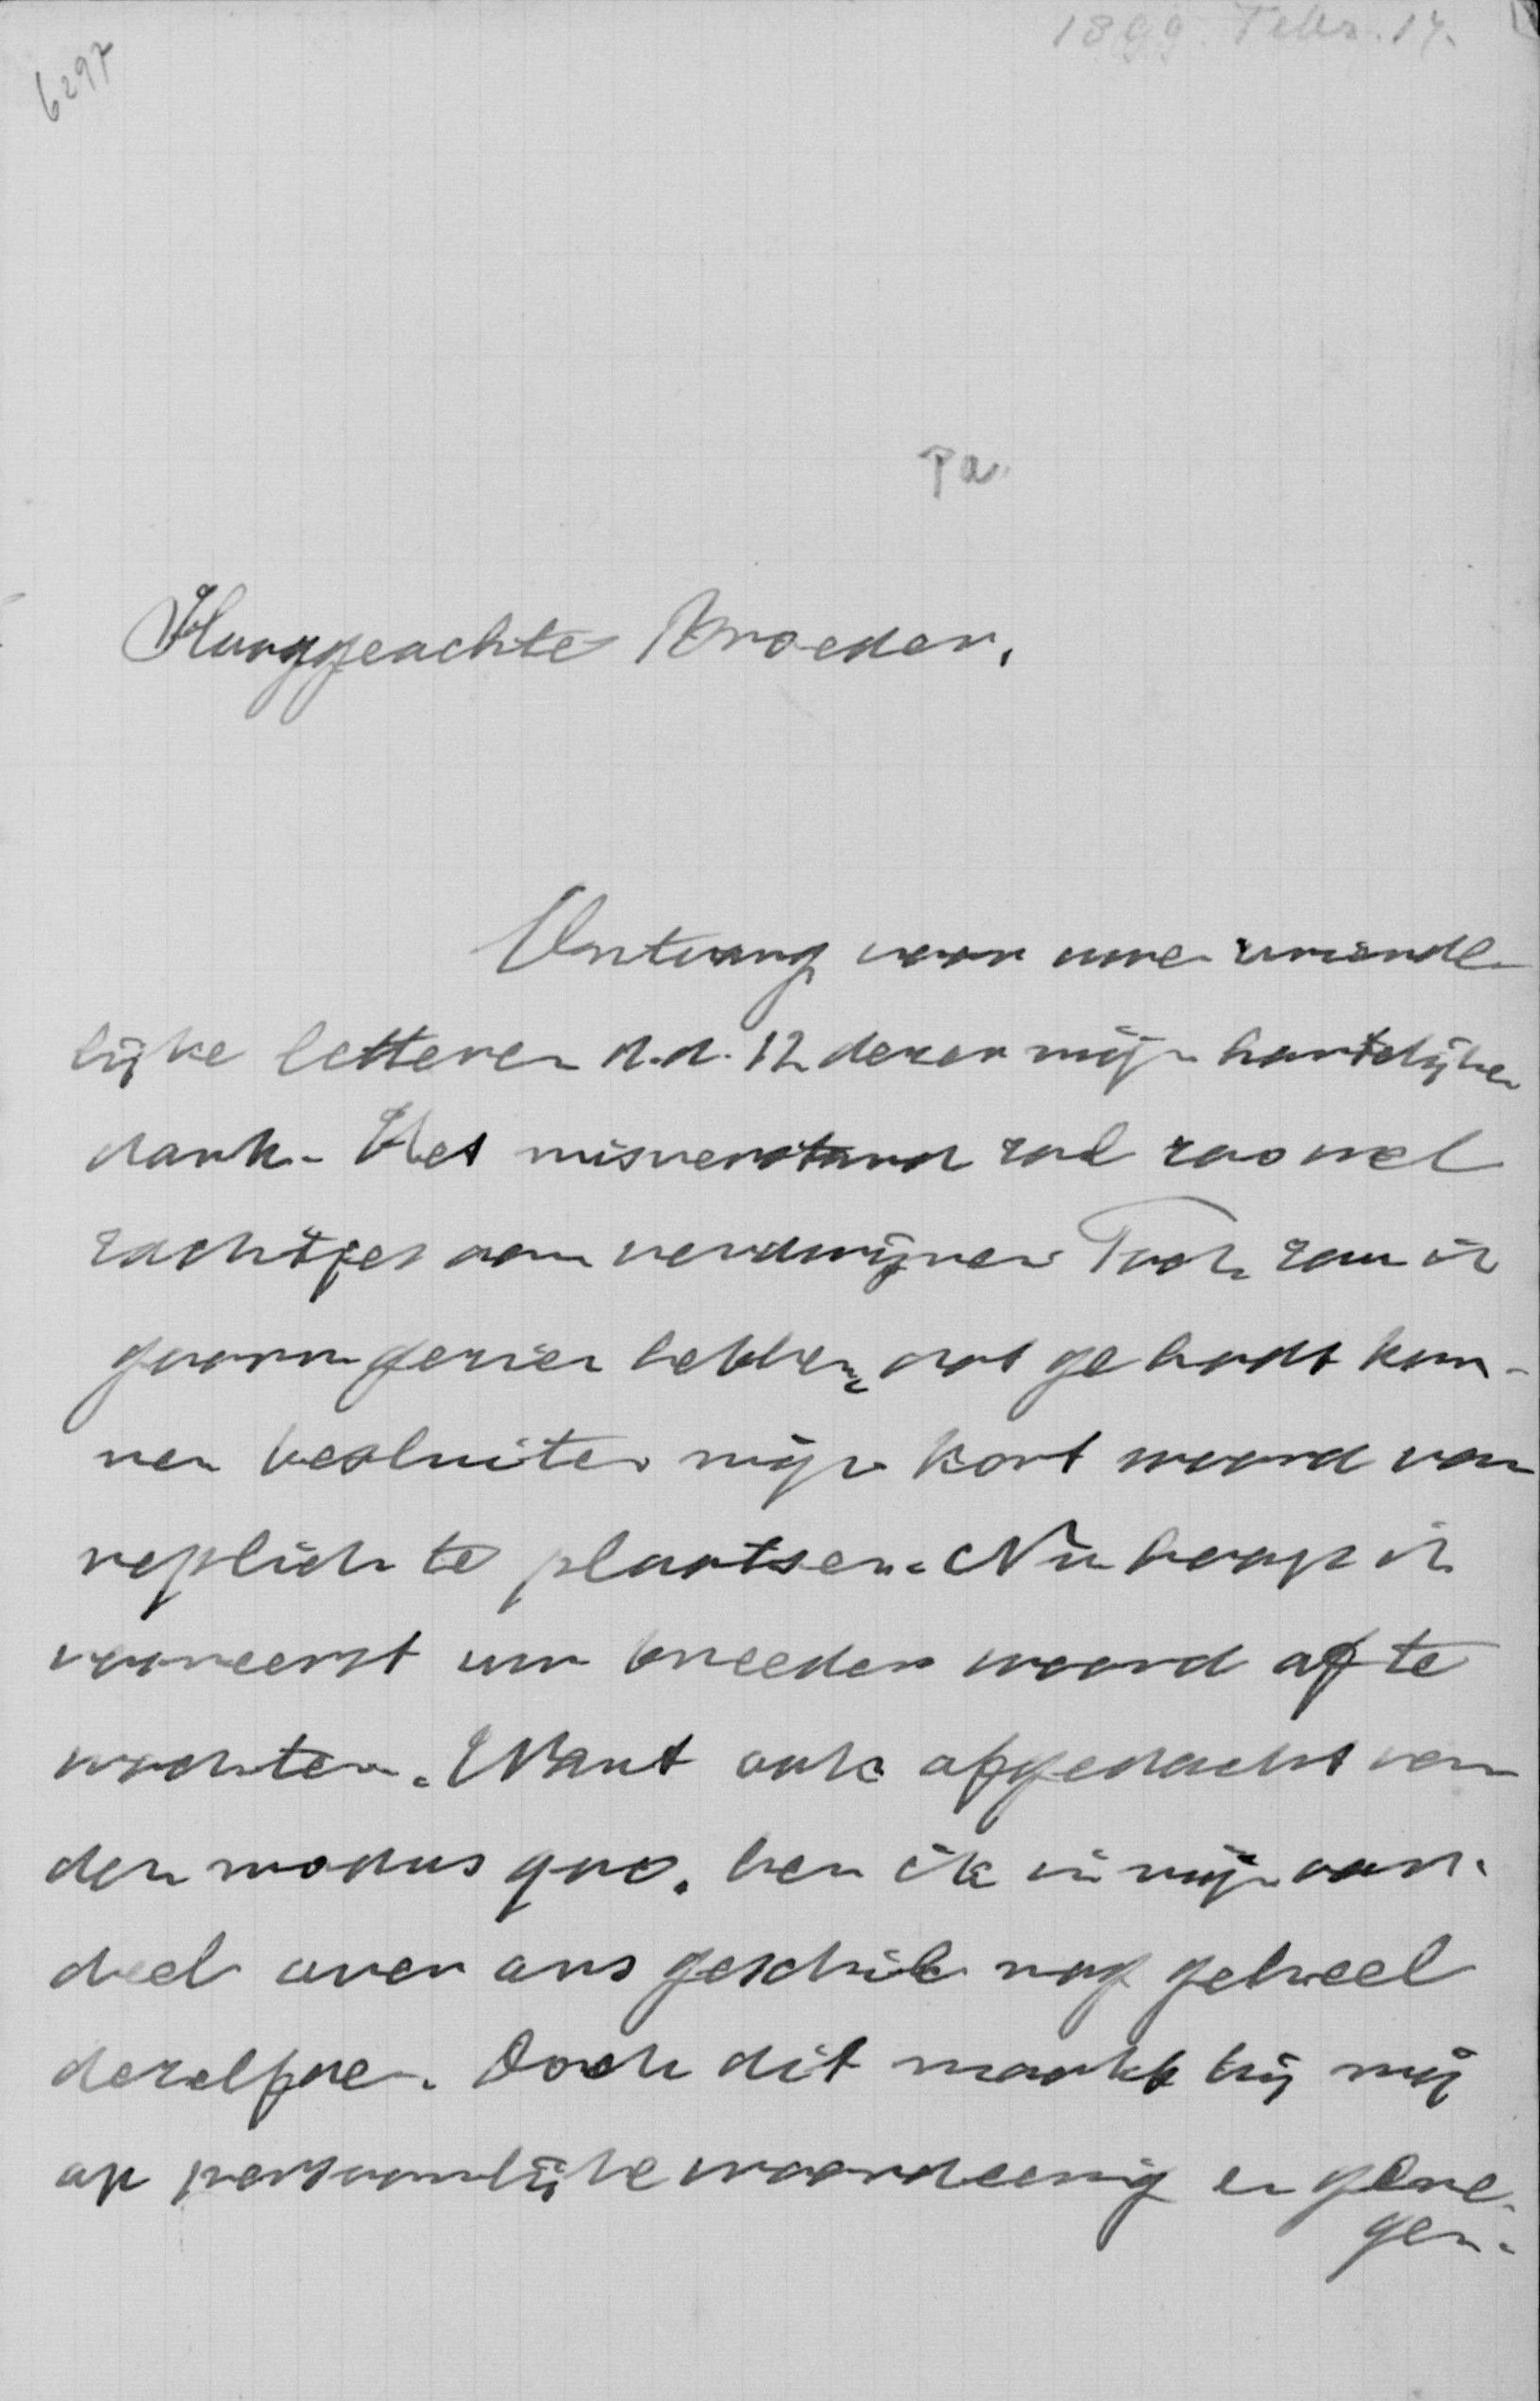 1899 Febr. 14.
6297
pa.
Hooggeachte Broeder,
Ontvang voor uwe vriende
lijke letteren d.d. 12 dezer mijn hartelijken
dank. Het misverstand zal zoo wel
zachtjes aan verdwijnen. Toch zou ik
gaarne gezien hebben, dat ge hadt kun-
nen besluiten mijn kort woord van
repliek te plaatsen. Nu hoop ik
vooreerst uw breeder woord af te
wachten. Want ook afgedacht van
den modus quo, ben ik in mijn oor-
deel over ons geschil nog geheel
dezelfde. Doch dit maakt bij mij
op persoonlijke waardeering en gene-
gen-